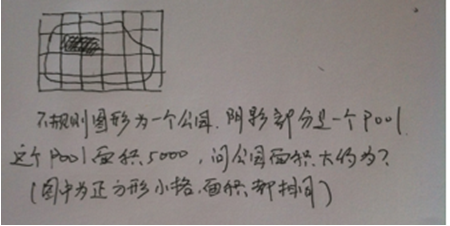 不规则图形为一个公园.阴影部分是一个pool.
这个pool面积5000,问公园面积大约为?
(图中为正方形小格.面积都相同)